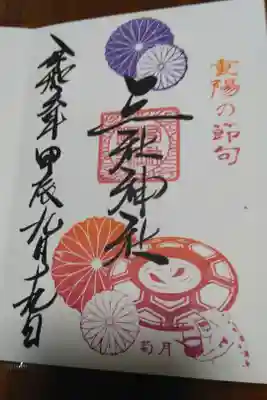 重陽の節句
三社神社
令和六年甲辰九月十九日
菊月